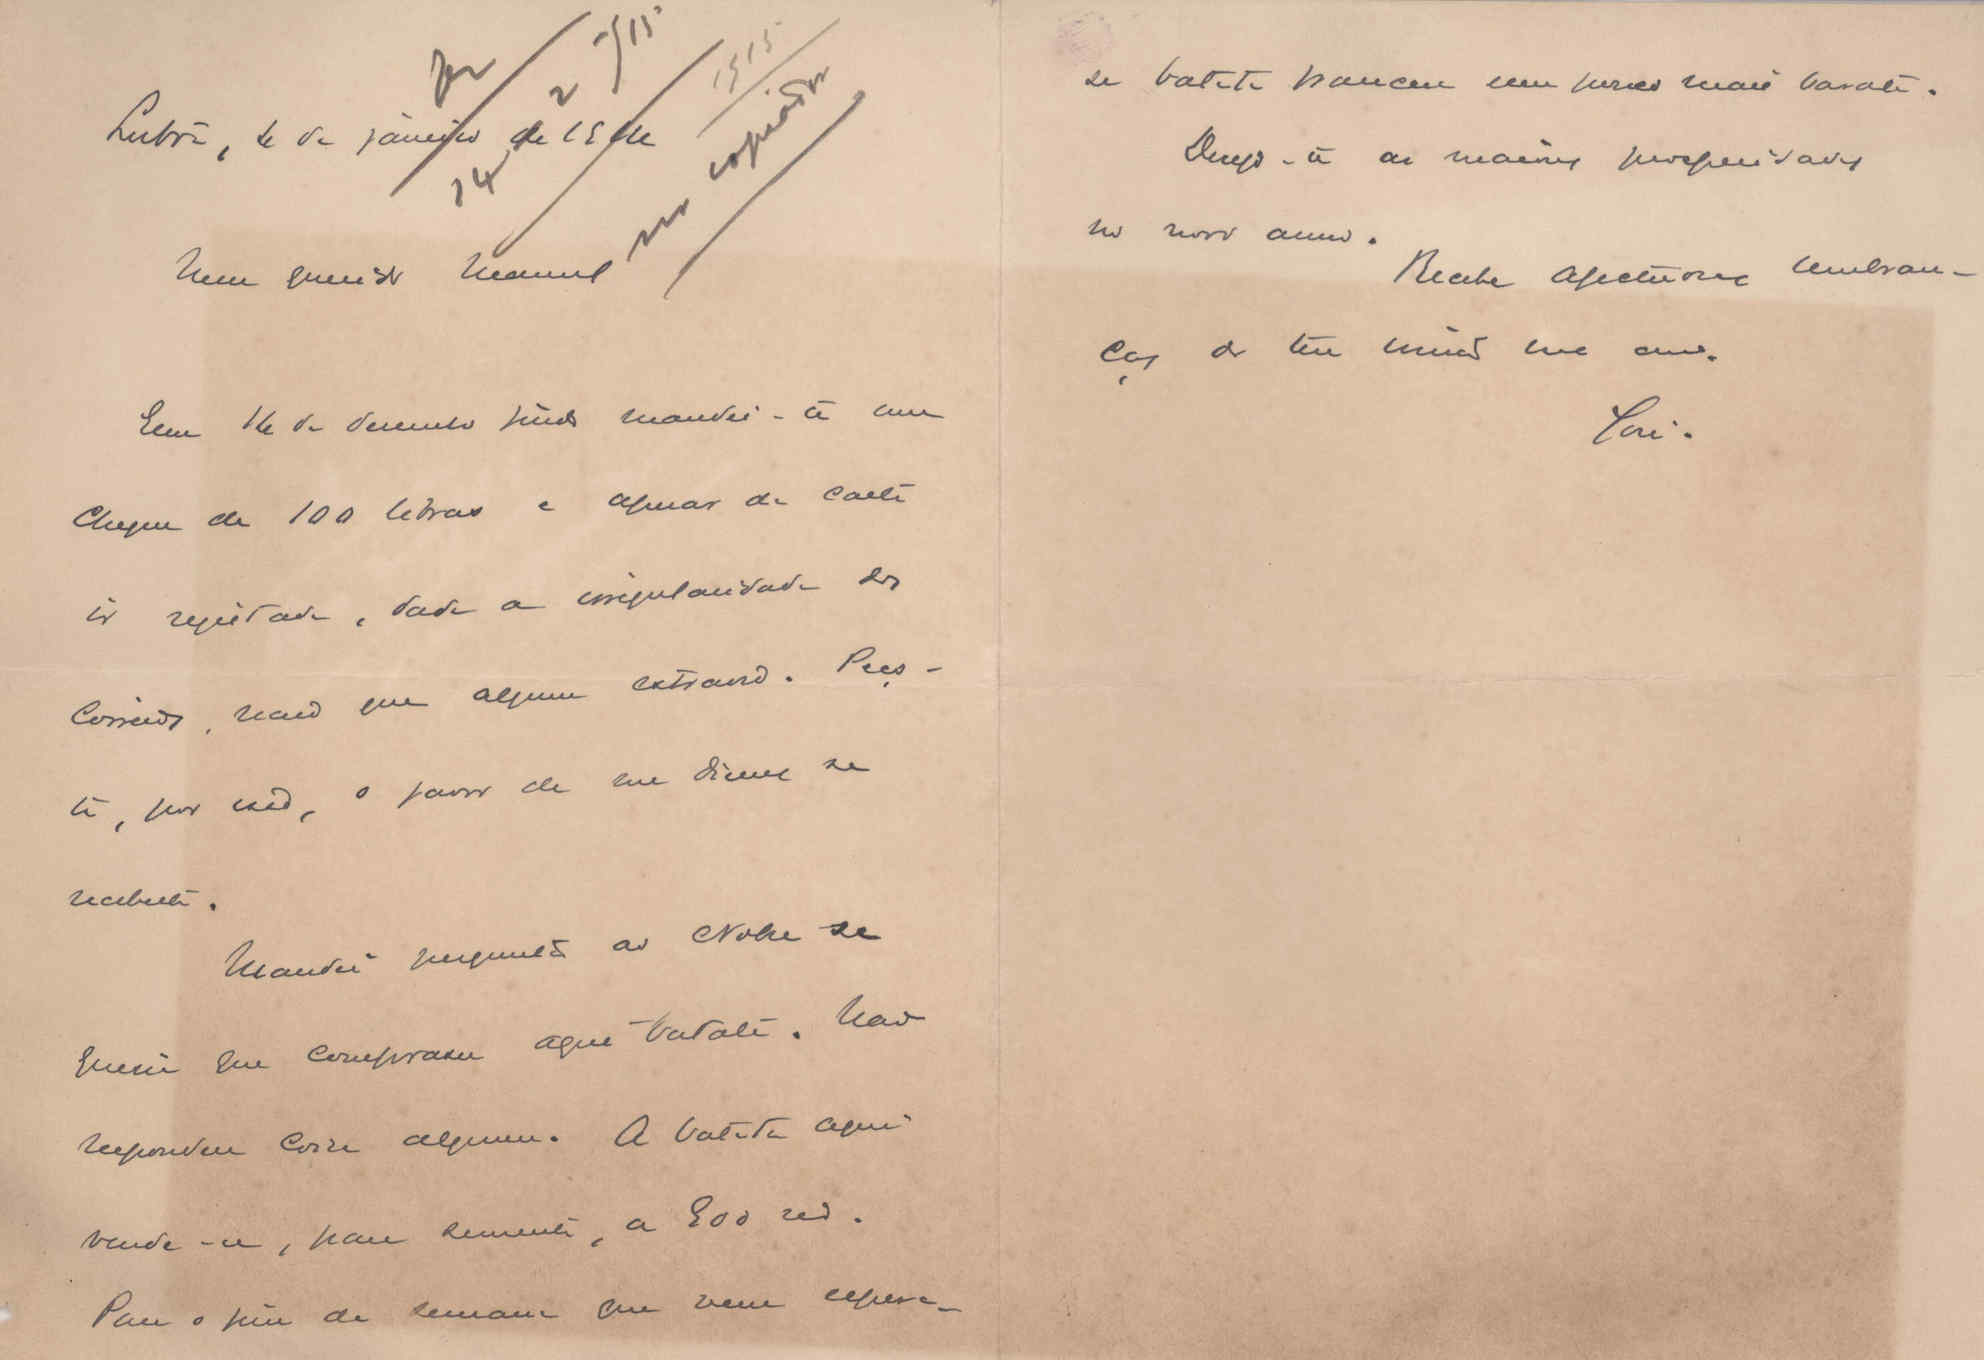 Lisboa, 4 de janeiro de 1914
14 2 915
1915
no copiador
Meu querido Manuel
Em 16 de dezembro findo mandei-te um
cheque de 100 libras e apesar da carta
ir registada, dada a irregularidade dos
correios, receio que algum extravio. Peço-
te, por isso, o favor de me dizeres se
recebeste.
Mandei perguntar ao Nobre se
queria que comprasse aqui batata. Não
respondeu coisa alguma. A batata aqui
vende-se, para semente, a 900 reis.
Para o fim da semana que vem espera-
se batata francesa um pouco mais barata.
Desejo-te as maiores prosperidades
no novo anno.
Recebe afectuosas lembran-
ças do teu irmão m.to am.o
José.